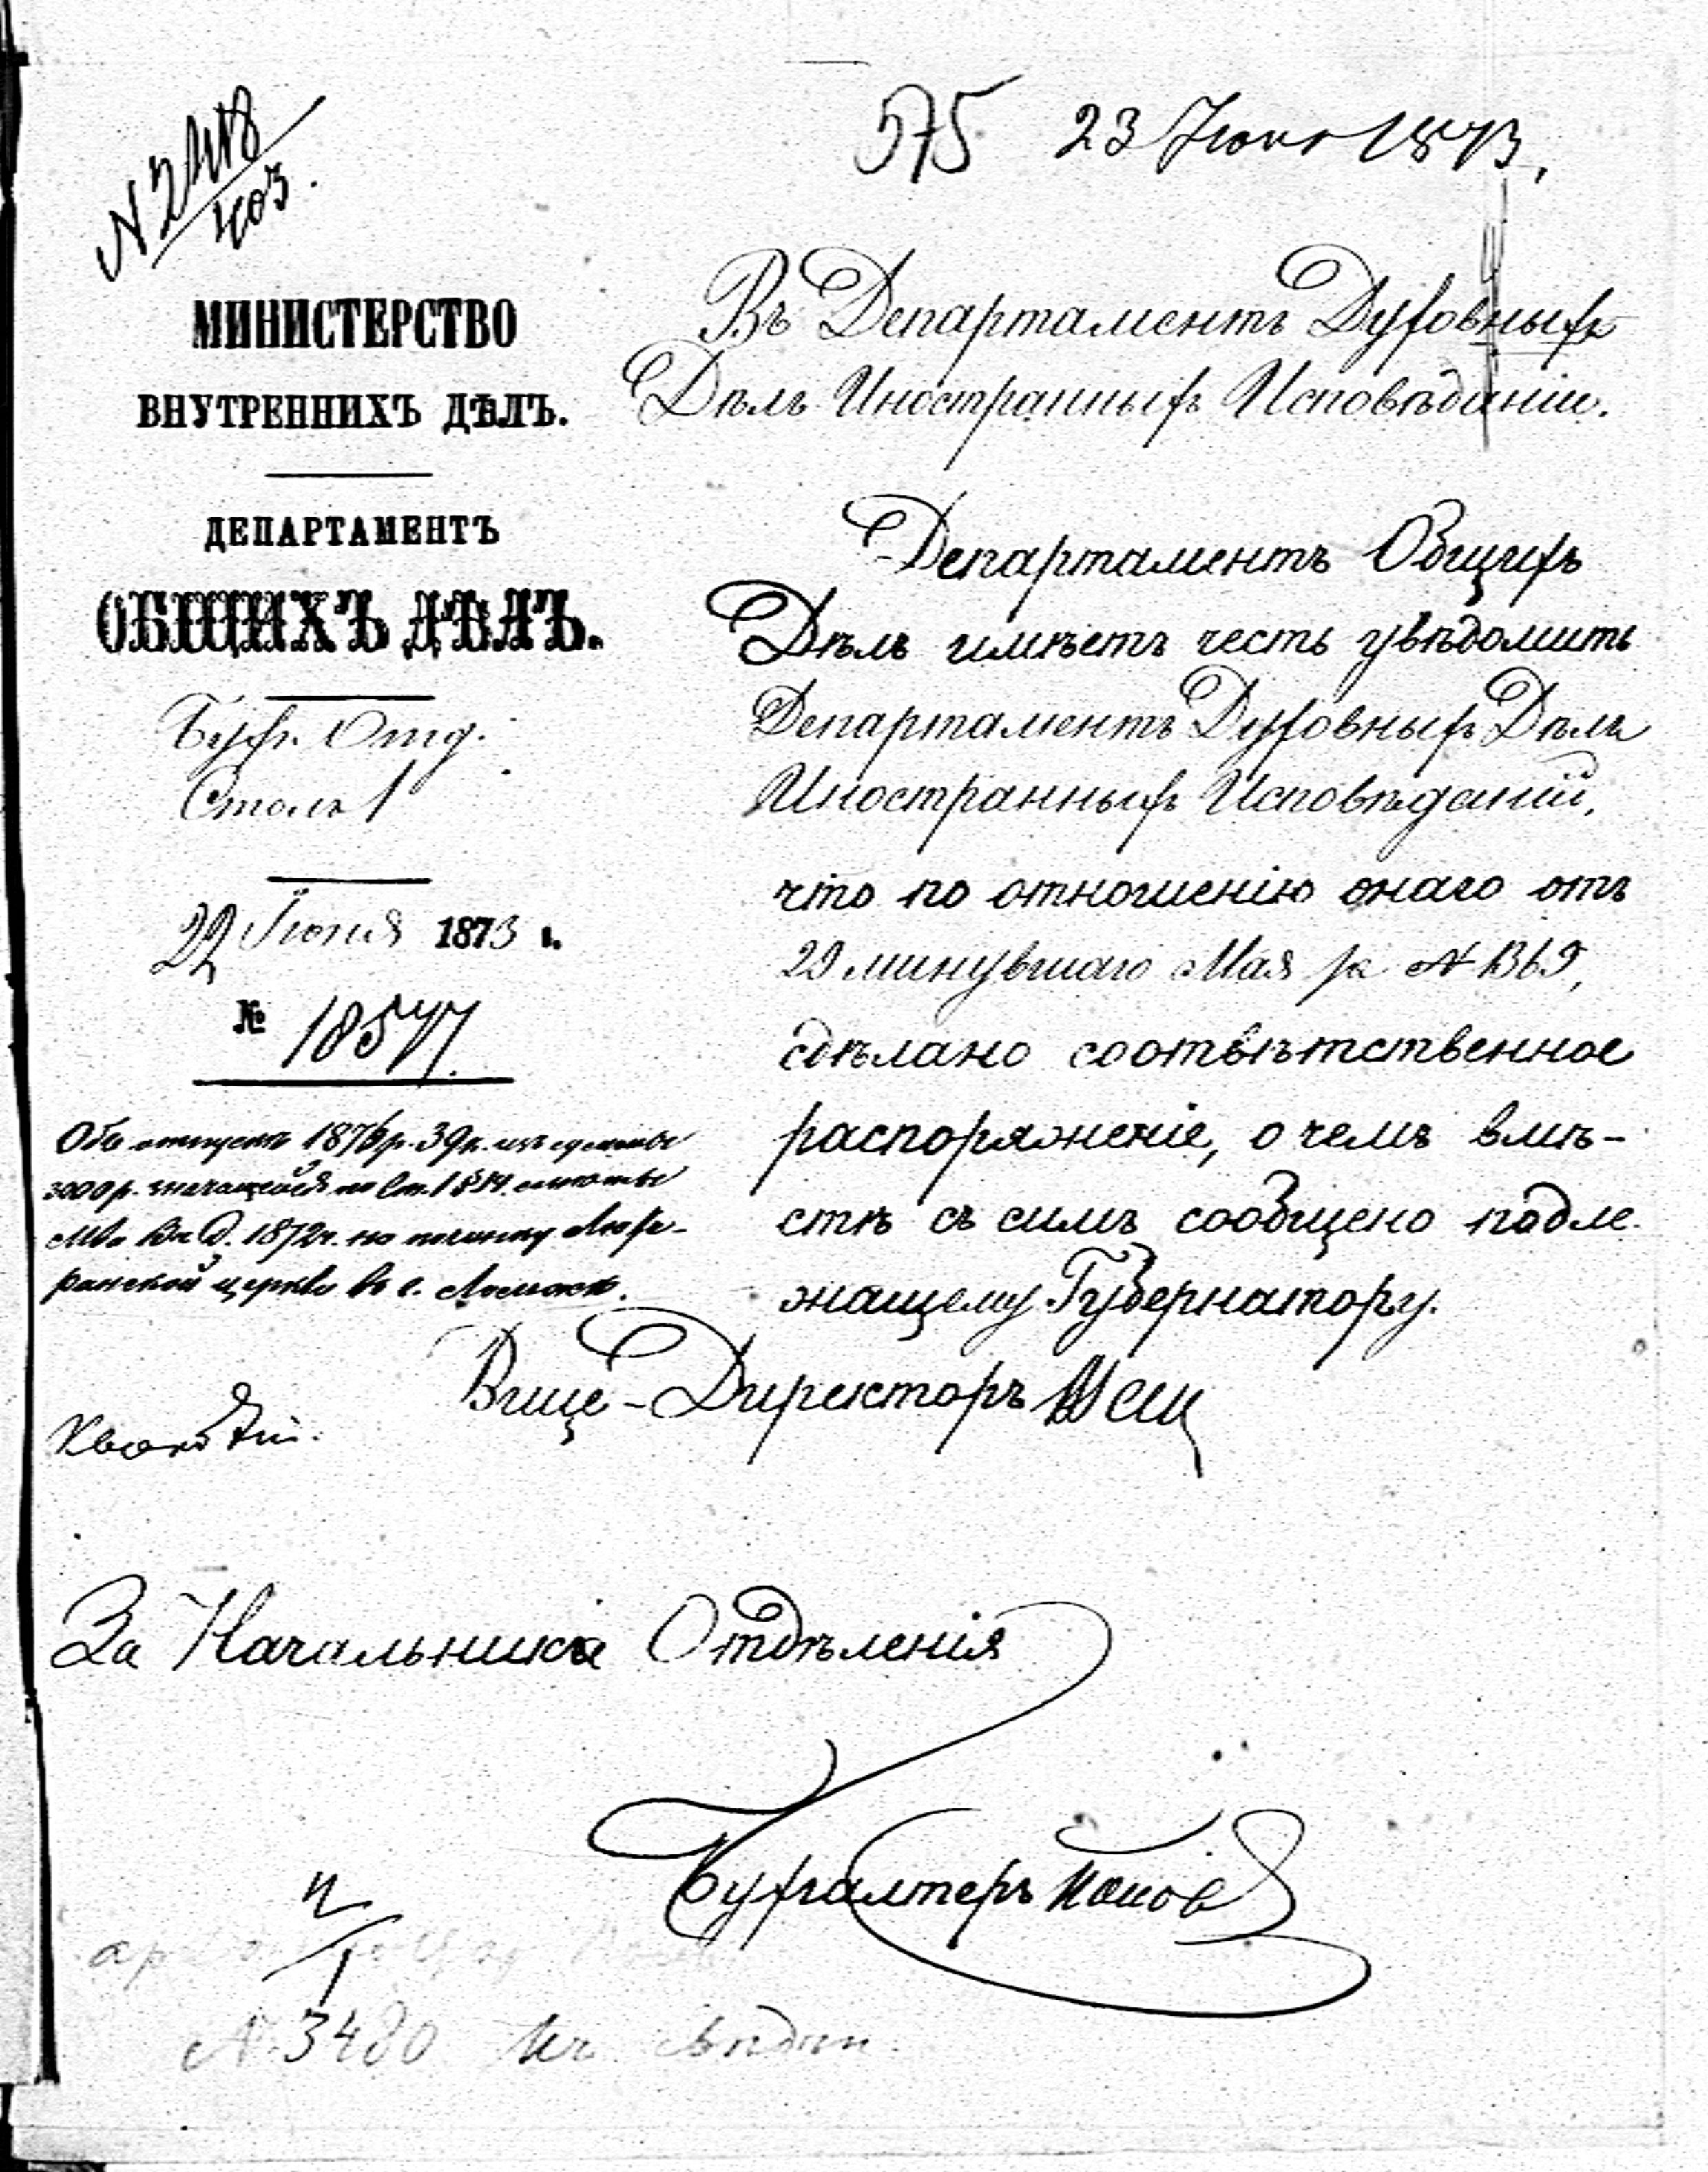 575 23 Іюня 1873,
№ 2418/403.
МИНИСТЕРСТВО
ВНУТРЕННИХЪ ДѢЛЪ.
ДЕПАРТАМЕНТЪ
ОБЩИХЪ ДѢЛЪ.
Бухг. Отд.
Столъ 1
22 Іюня 1873 г.
№ 18577.
Объ отпускѣ 1876 р. 39 к. изъ суммы
3000 р. значащейся по ст. 1 § 14 сметы
М-ва Вн. Д. 1872 г. на починку Люте-
ранской церкви въ г. Ломжѣ.
Въ Департаментъ Духовныхъ
Дѣлъ Иностранныхъ Исповѣданій.
Департаментъ Общихъ
Дѣлъ имѣетъ честь увѣдомить
Департаментъ Духовныхъ Дѣлъ
Иностранныхъ Исповѣданій,
что по отношенію онаго отъ
29 минувшаго Мая за № 1369,
сдѣлано соотвѣтственное
распоряженіе, о чемъ вмѣ-
стѣ съ симъ сообщено подле-
жащему Губернатору.
Вице-Директоръ
За Начальника Отдѣленія
Бухгалтеръ Попов
№ 3480